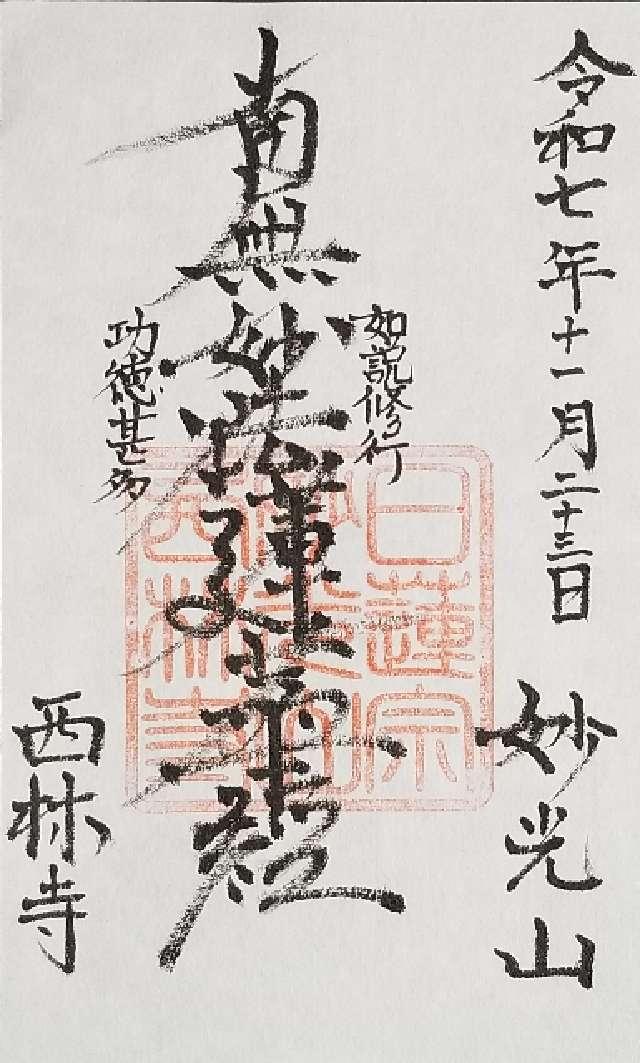 令和七年十一月二十三日
妙光山
如説修行
南無妙法蓮華経
功徳甚多
西林寺
日蓮宗
西林寺